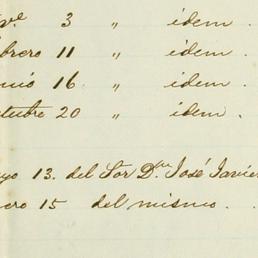 ve 3 " idem.
brero 11 " idem.
unio 16. " idem.
ctubre 20 " idem.
yo 13. del Sor Dn José Javie
ero 15 del mismo.